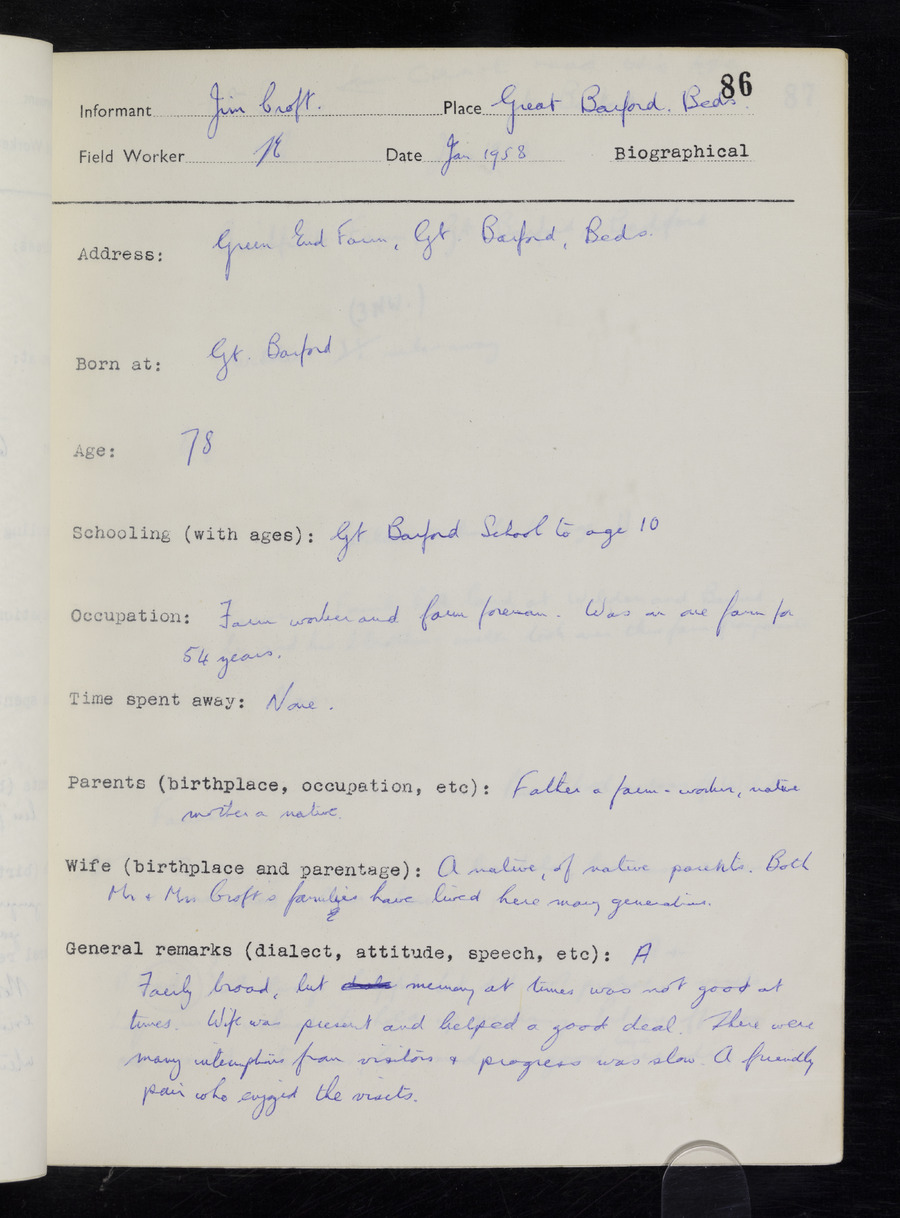 86
Informant Jim Croft. Place Great Barford. Beds.
Field Worker Date Jan 1958 Biographical
Address: Green End Farm, Gt. Barford, Beds.
Born at: Gt. Barford
Age: 78
Schooling (with ages): Gt Barford School to age 10
Occupation: Farm worker and farm foreman. Was on one farm for
54 years.
Time spent away: None.
Parents (birthplace, occupation, etc): Father a farm-worker, native
mother a native.
Wife (birthplace and parentage): A native, of native parents. Both
Mr + Mrs Croft's families have lived here many generations.
General remarks (dialect, attitude, speech, etc): A
Fairly broad, but memory at times was not good at
times. Wife was present and helped a good deal. There were
many interruptions from visitors & progress was slow. A friendly
pair who enjoyed the visits.